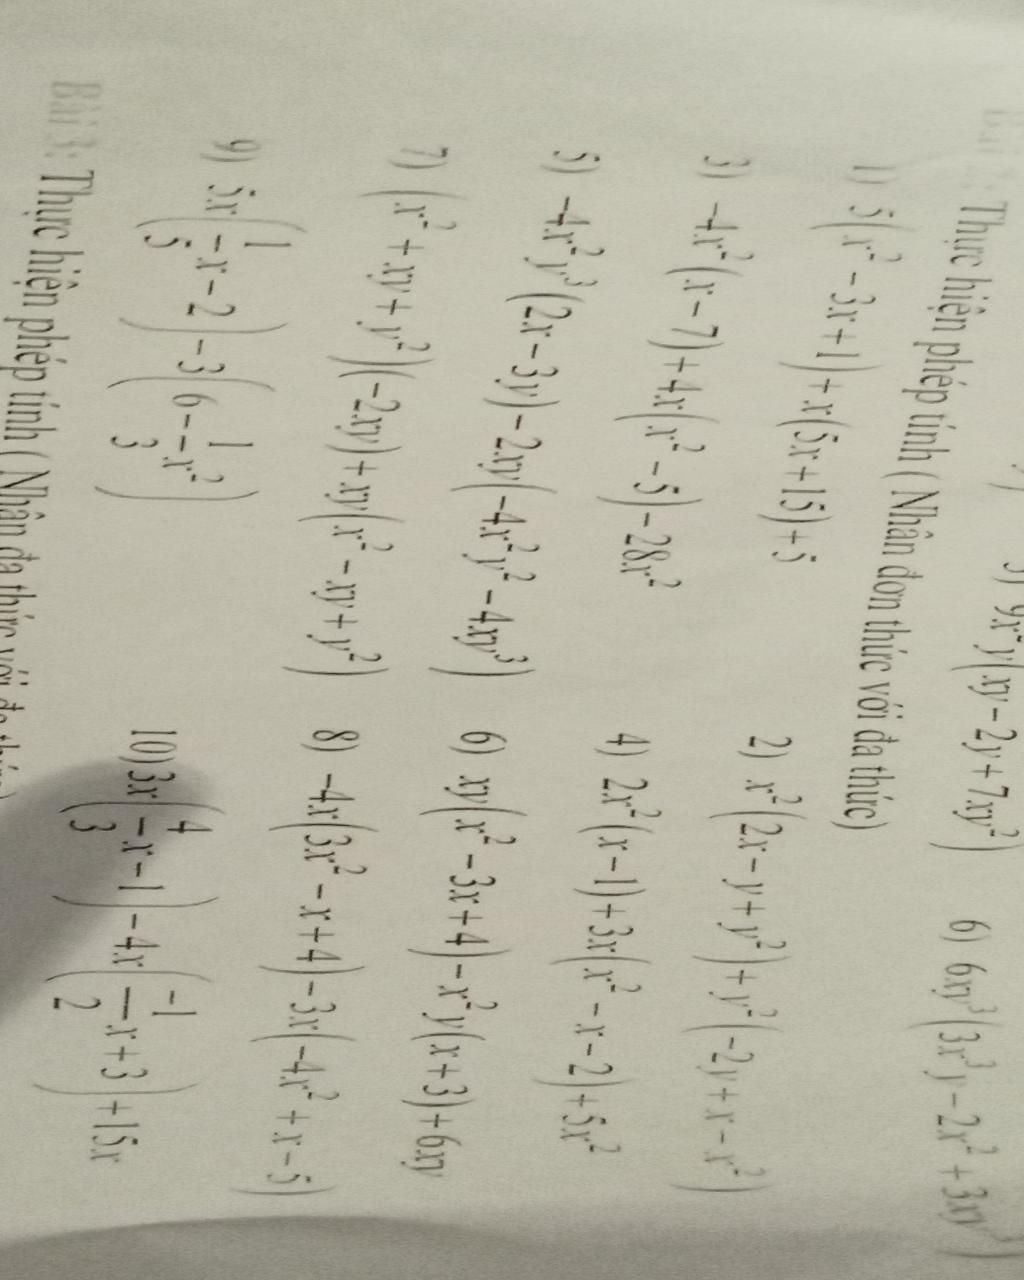 5) 9x²y(xy − 2y + 7xy²) 6) 6xy³(3x³y − 2x² + 3xy³)
Thực hiện phép tính ( Nhân đơn thức với đa thức)
1) 5(x² − 3x + 1) + x(5x + 15) + 5 2) x²(2x − y + y²) + y²(−2y + x − x²)
3) −4x²(x − 7) + 4x(x² − 5) − 28x² 4) 2x²(x − 1) + 3x(x² − x − 2) + 5x²
5) −4x²y³(2x − 3y) − 2xy(−4x²y² − 4xy³) 6) xy(x² − 3x + 4) − x²y(x + 3) + 6xy
7) (x² + xy + y²)(−2xy) + xy(x² − xy + y²) 8) −4x(3x² − x + 4) − 3x(−4x² + x − 5)
9) 5x(1/5 x − 2) − 3(6 − 1/3 x²) 10) 3x(4/3 x − 1) − 4x(−1/2 x + 3) + 15x
Bài 3: Thực hiện phép tính ( Nhân đa thức với đa thức)